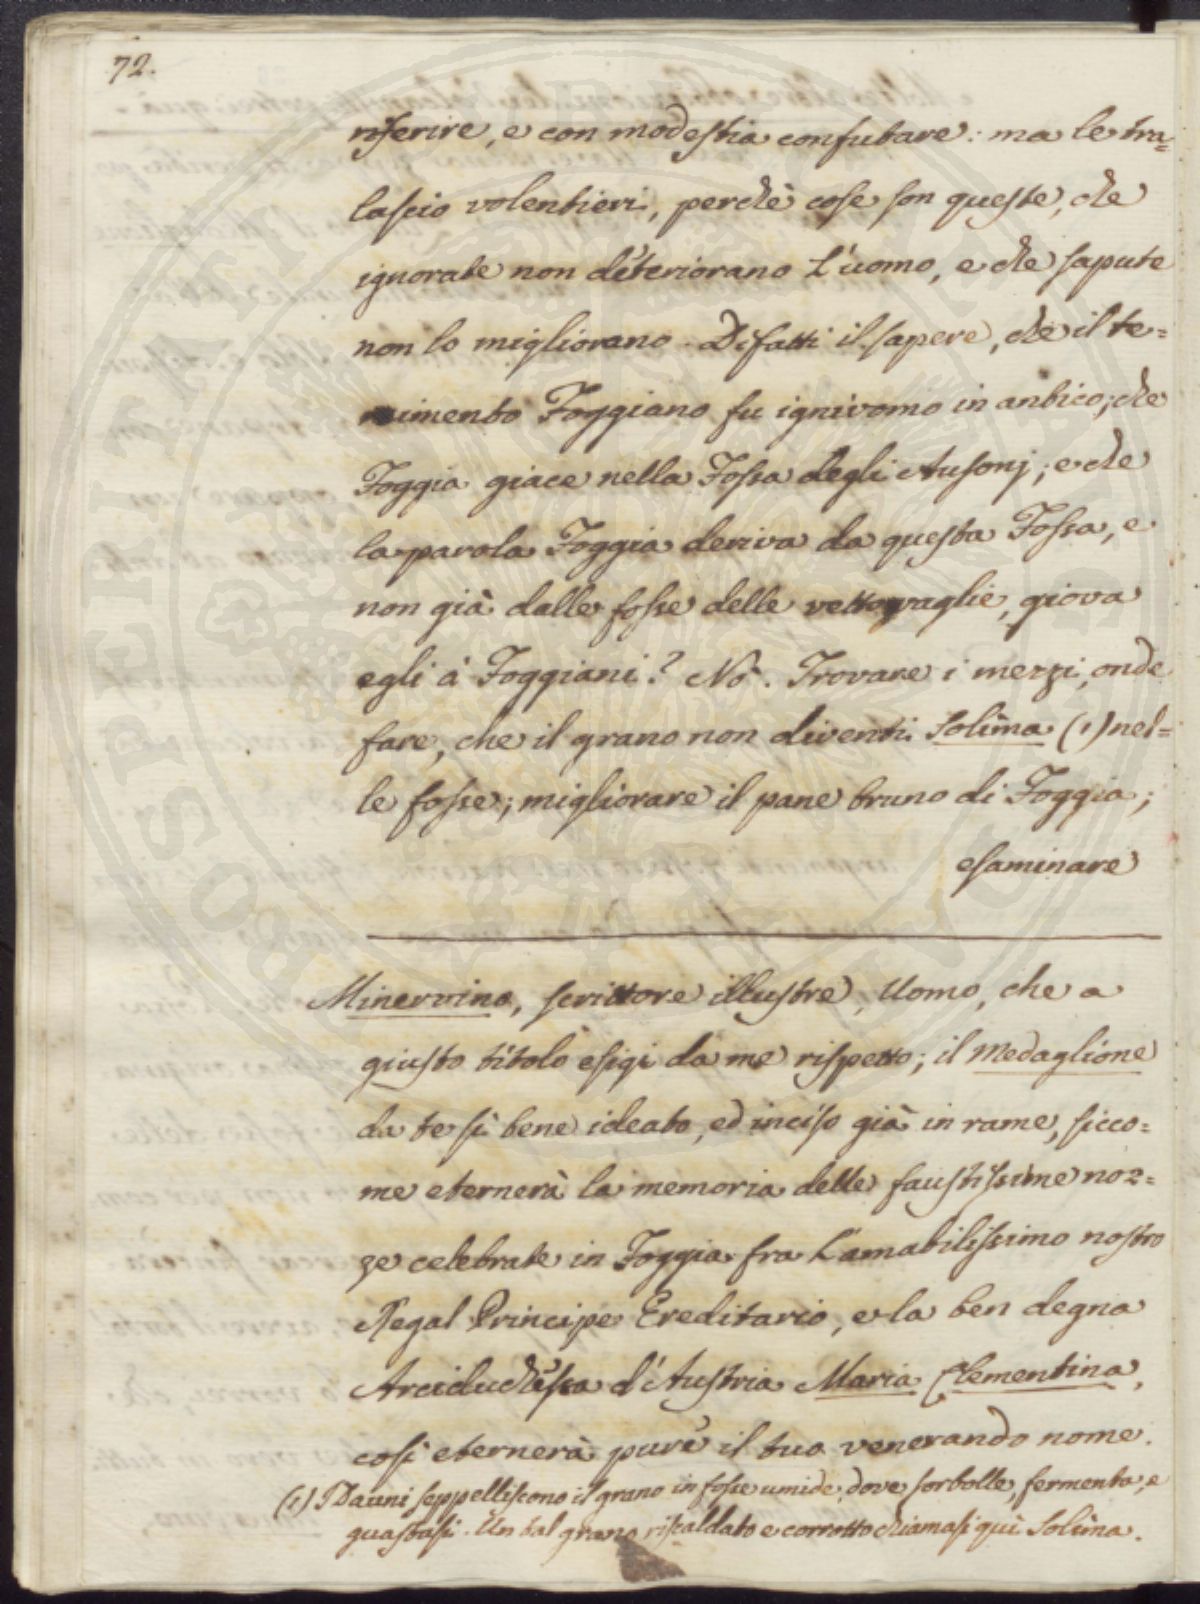 72.
riferire, e con modestia confutare: ma le tra=
lascio volentieri, perchè cose son queste, che
ignorate non deteriorano l'uomo, e che sapute
non lo migliorano. Difatti il sapere, che il te=
nimento Foggiano fu ignivomo in antico; che
Foggia giace nella Fossa degli Ausonj; e che
la parola Foggia deriva da questa Fossa, e
non già dalle fosse delle vettovaglie, giova
egli à Foggiani? Nò. Trovare i mezzi, onde
fare, che il grano non diventi Solima (1) nel=
le fosse; migliorare il pane bruno di Foggia;
esaminare
Minervino, scrittore illustre, Uomo, che a
giusto titolo esigi da me rispetto; il Medaglione
da te sì bene ideato, ed inciso già in rame, sicco=
me eternerà la memoria delle faustissime noz=
ze celebrate in Foggia fra l'amabilissimo nostro
Regal Principe Ereditario, e la ben degna
Arciduchessa d'Austria Maria Clementina,
così eternerà pure il tuo venerando nome.
(1) I Dauni seppelliscono il grano in fosse umide, dove sorbolle, fermenta, e
guastasi. Un tal grano riscaldato e corrotto chiamasi quì Solima.
PROSPERITATI